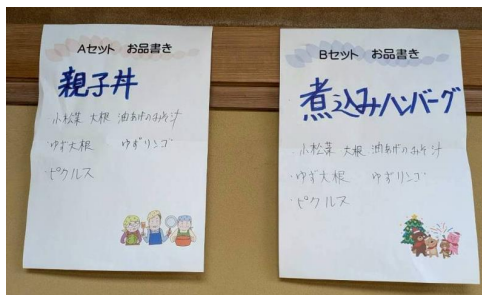 Aセット お品書き
親子丼
・小松菜 大根 油あげのおみそ汁
・ゆず大根 ゆずリンゴ
・ピクルス
Bセット お品書き
煮込みハンバーグ
・小松菜 大根 油あげのおみそ汁
・ゆず大根 ゆずリンゴ
・ピクルス